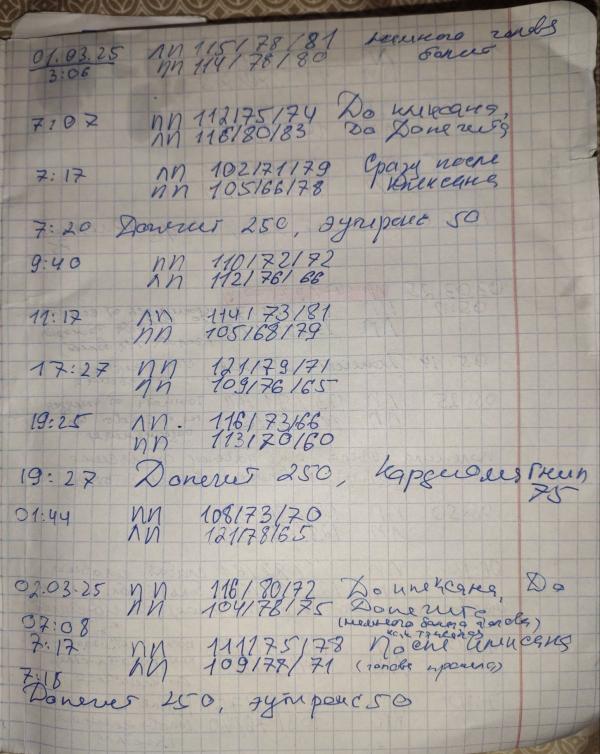 01.03.25 ЛП 115/78/81 немного голова
3:06 ПП 114/78/80 болит
7:07 ПП 112/75/74 До клексана,
ЛП 116/80/83 до Допегита
7:17 ЛП 102/71/79 Сразу после
ПП 105/66/78 Клексана
7:20 Допегит 250, эутирокс 50
9:40 ПП 110/72/72
ЛП 112/76/66
11:17 ЛП 114/73/81
ПП 105/68/79
17:27 ПП 121/79/71
ЛП 109/76/65
19:25 ЛП 116/73/66
ПП 113/70/60
19:27 Допегит 250, Кардиомагнил
75
01:44 ПП 108/73/70
ЛП 121/78/65
02.03.25 ПП 116/80/72 До клексана, До
ЛП 104/78/75 Допегита
07:08 (немного болит голова)
7:17 ПП 111/75/78 После клексана
ЛП 109/77/71 (голова прошла)
7:18
Допегит 250, эутирокс 50